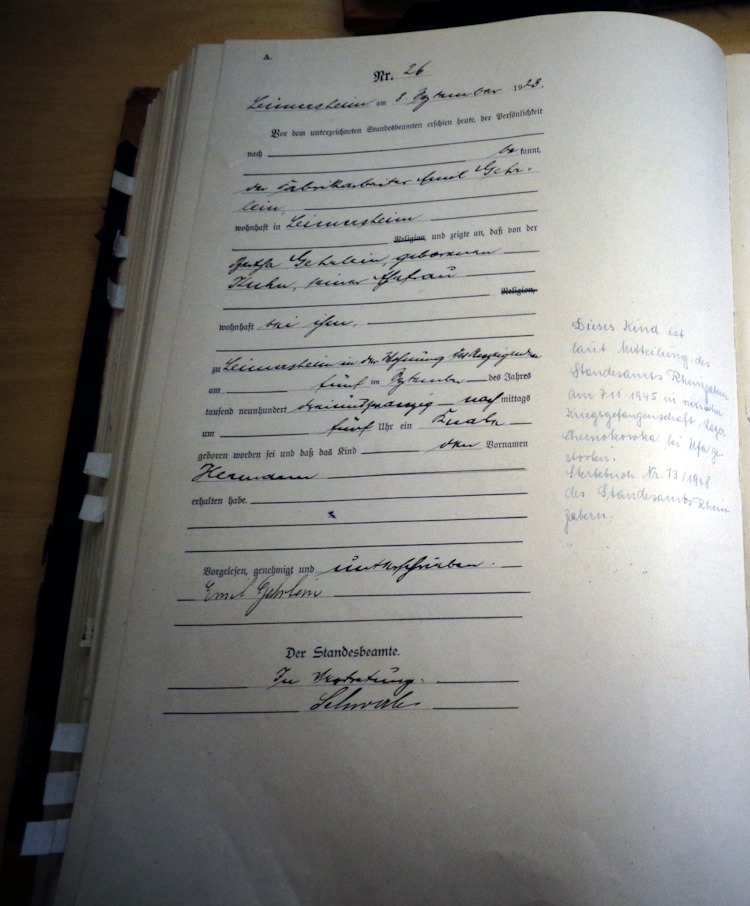 A.
Nr. 26
Leimersheim am 8. September 1923.
Vor dem unterzeichneten Standesbeamten erschien heute, der Persönlichkeit
nach
be kannt,
der Fabrikarbeiter Emil Gehr-
lein,
wohnhaft in Leimersheim
Religion, und zeigte an, daß von der
Gehrlein, geborenen
Kuhn, seiner Ehefrau
Religion,
wohnhaft bei ihm,
zu Leimersheim in der Wohnung des Anzeigenden
am fünf ten September des Jahres
tausend neunhundert dreiundzwanzig nach mittags
um fünf Uhr ein Knabe
geboren worden sei und daß das Kind den Vornamen
Hermann
erhalten habe.
Vorgelesen, genehmigt und unterschrieben.
Emil Gehrlein
Der Standesbeamte.
In Vertretung.
Dieses Kind ist
laut Mitteilung des
Standesamts Rheinzabern
am 7.11.1945 in russischer
Kriegsgefangenschaft, Lager
bei Ufa ge-
storben.
Sterbebuch Nr. 13/1948
des Standesamts Rhein-
zabern.